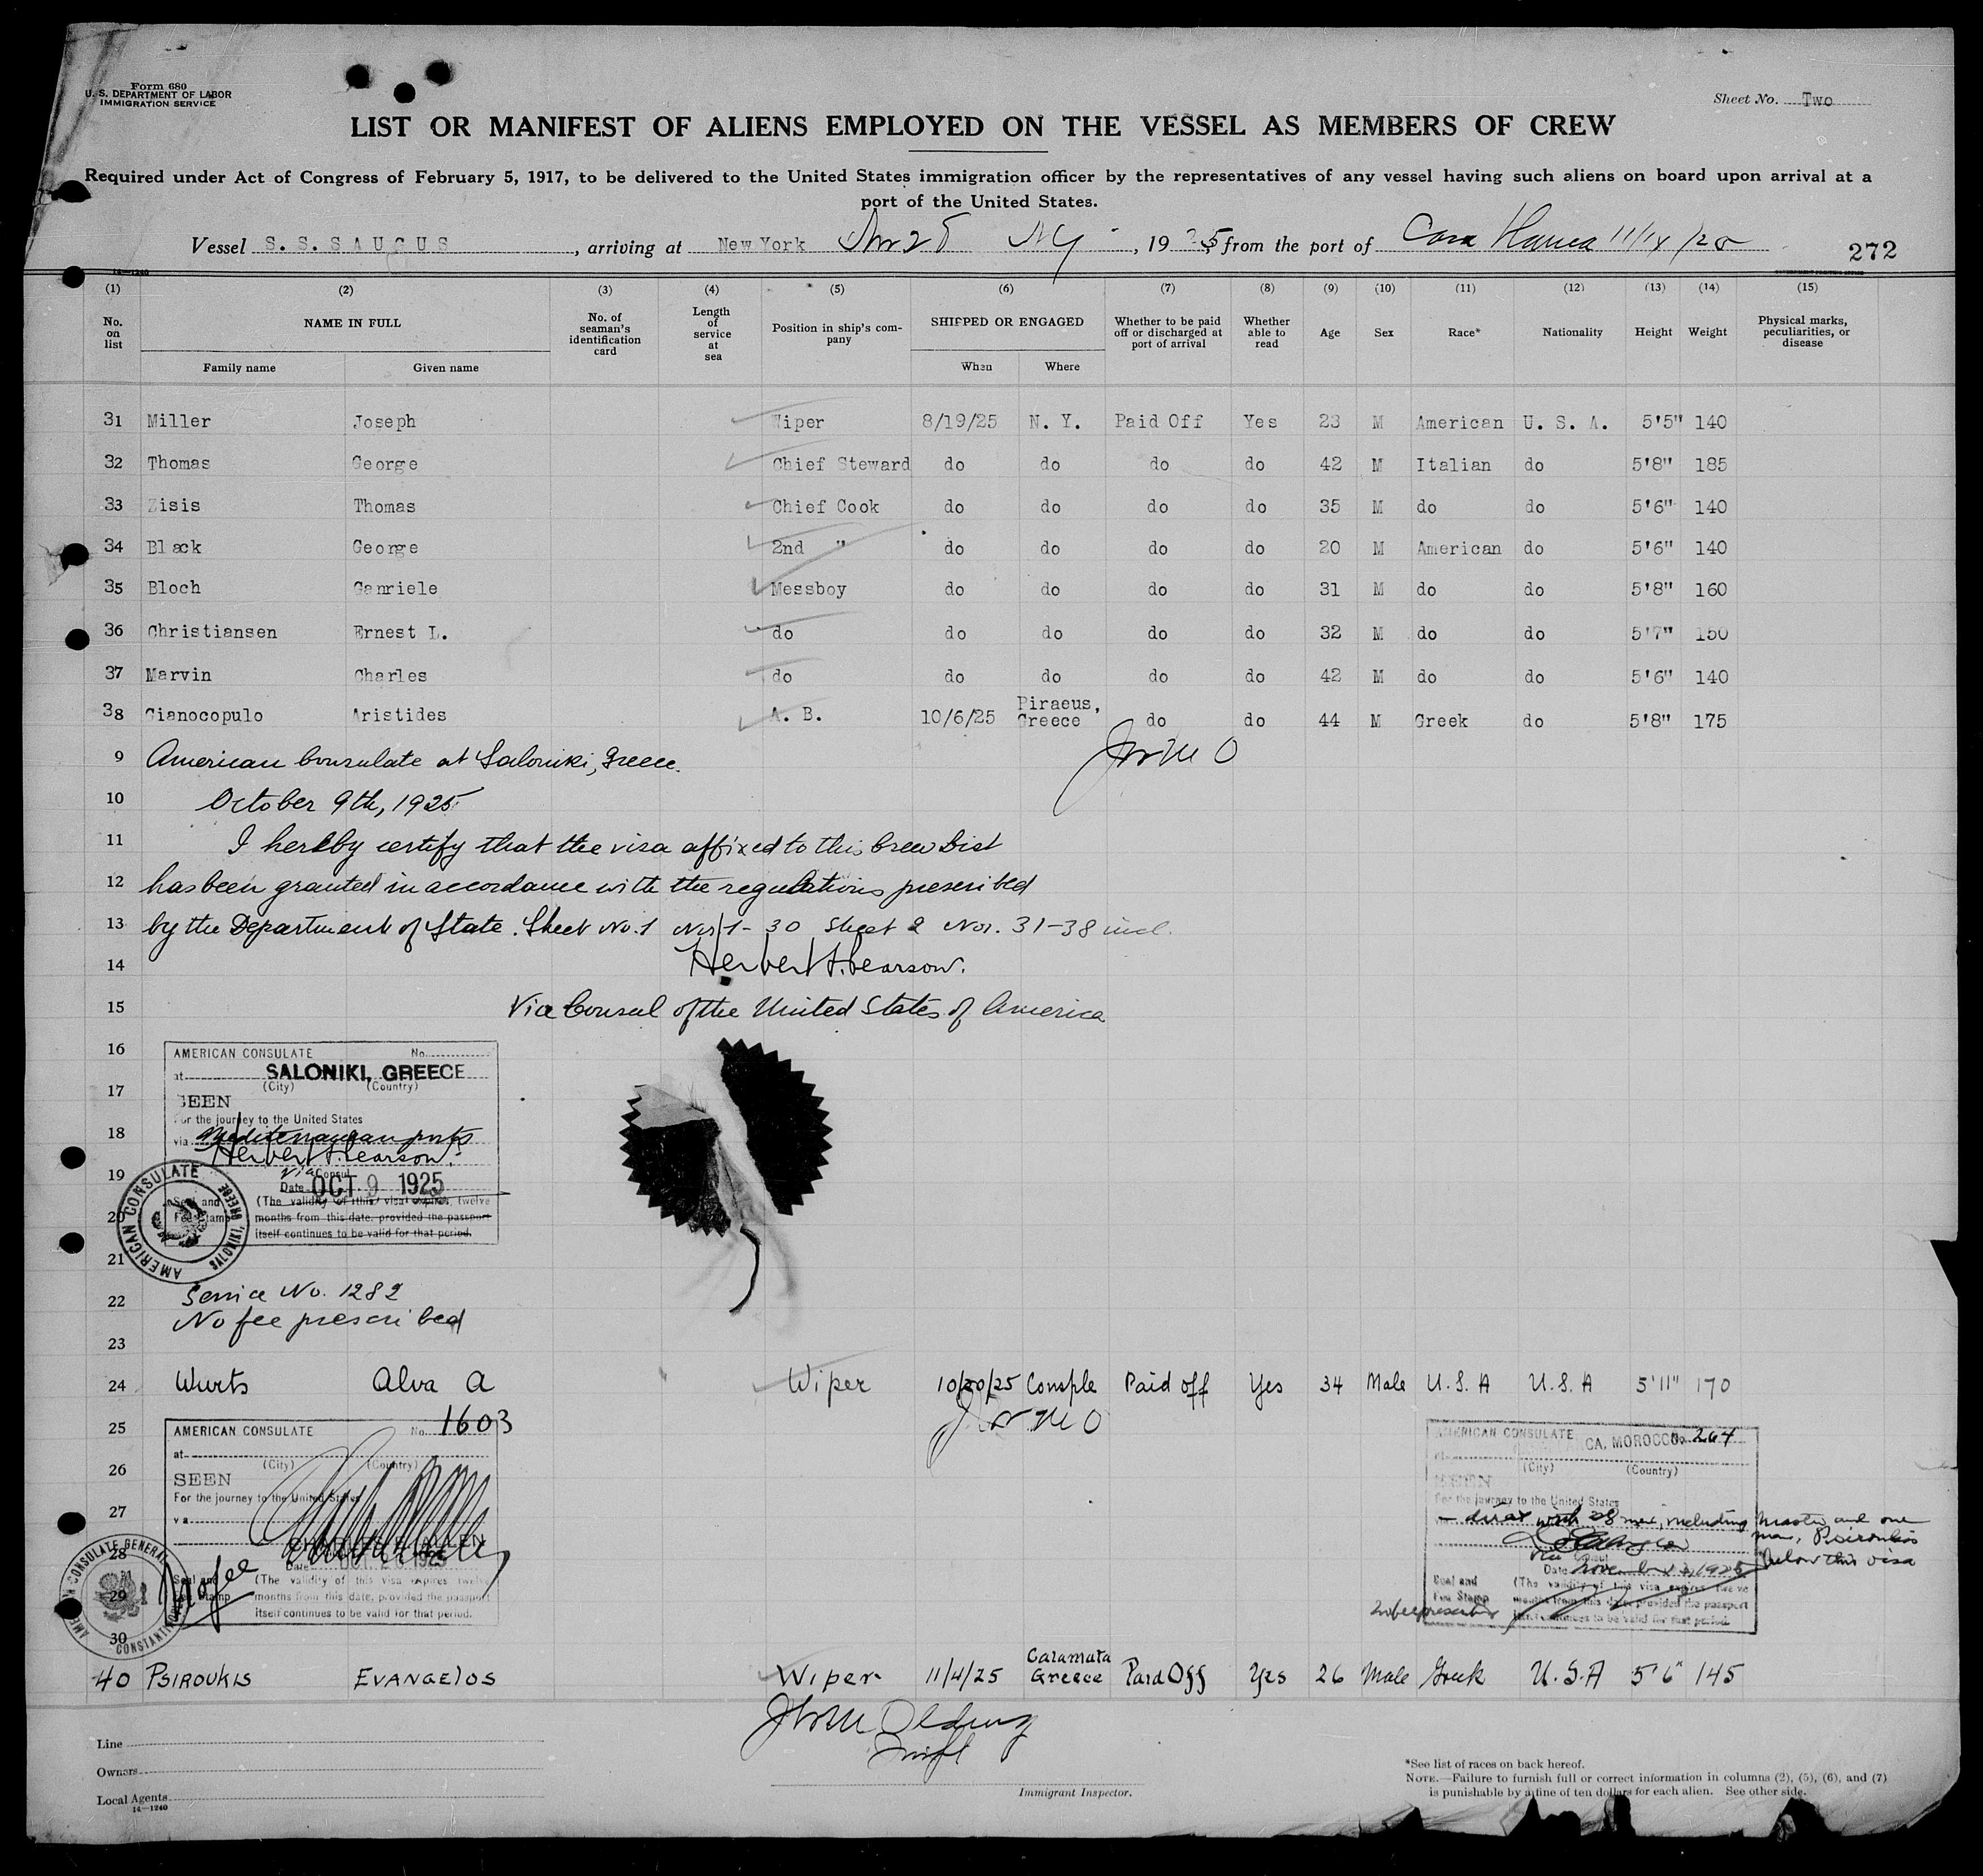 Form 680
U. S. DEPARTMENT OF LABOR
IMMIGRATION SERVICE
Sheet No. Two
LIST OR MANIFEST OF ALIENS EMPLOYED ON THE VESSEL AS MEMBERS OF CREW
Required under Act of Congress of February 5, 1917, to be delivered to the United States immigration officer by the representatives of any vessel having such aliens on board upon arrival at a
port of the United States.
Vessel S. S. SAUGUS, arriving at New York Nov 25 NY, 1925, from the port of Casa
272
14—1240
(1) (2) (3) (4) (5) (6) (7) (8) (9) (10) (11) (12) (13) (14) (15)
No. on list NAME IN FULL No. of seaman's identification card Length of service at sea Position in ship's company SHIPPED OR ENGAGED Whether to be paid off or discharged at port of arrival Whether able to read Age Sex Race* Nationality Height Weight Physical marks, peculiarities, or disease
Family name Given name When Where
31 Miller Joseph Wiper 8/19/25 N. Y. Paid Off Yes 23 M American U. S. A. 5'5" 140
32 Thomas George Chief Steward do do do do 42 M Italian do 5'8" 185
33 Zisis Thomas Chief Cook do do do do 35 M do do 5'6" 140
34 Black George 2nd " do do do do 20 M American do 5'6" 140
35 Bloch Ganriele Messboy do do do do 31 M do do 5'8" 160
36 Christiansen Ernest L. do do do do do 32 M do do 5'7" 150
37 Marvin Charles do do do do do 42 M do do 5'6" 140
38 Gianocopulo Aristides A. B. 10/6/25 Piraeus, Greece do do 44 M Greek do 5'8" 175
9 American Consulate at Saloniki, Greece.
10 October 9th, 1925
11 I hereby certify that the visa affixed to this Crew List
12 has been granted in accordance with the regulations prescribed
13 by the Department of State. Sheet No. 1 Nos 1-30 Sheet 2 Nos. 31-38 incl.
14 Herbert S. Pearson.
15 Vice Consul of the United States of America
16 AMERICAN CONSULATE No.
at SALONIKI, GREECE
(City) (Country)
17 SEEN
For the journey to the United States
18 via Mediterranean ports
Herbert S. Pearson.
19 Vice Consul
Date OCT 9 1925
Seal and Fee Stamp
(The validity of this visa expires twelve
20 months from this date, provided the passport
itself continues to be valid for that period.
AMERICAN CONSULATE SALONIKI, GREECE
21
22 Service No. 1282
No fee prescribed
23
24 Wurts Alva A Wiper 10/20/25 Conople Paid off Yes 34 Male U. S. A U. S. A 5'11" 170
25 AMERICAN CONSULATE No. 1603
at
(City) (Country)
26 SEEN
For the journey to the United States
27 via
28
Date OCT. 20 1925
29 Seal and Fee Stamp
No fee
(The validity of this visa expires twelve
months from this date, provided the passport
itself continues to be valid for that period.
30
AMERICAN CONSULATE GENERAL
AMERICAN CONSULATE CA, MOROCCO No. 264
(City) (Country)
SEEN
For the journey to the United States
direct with 28 men, including Master, and one
man, Psiroukis
below this visa
Vice Consul
Date
Seal and Fee Stamp
(The validity of this visa expires twelve
months from this date, provided the passport
itself continues to be valid for that period.
No fee prescribed
40 PSIROUKIS EVANGELOS Wiper 11/4/25 Calamata Greece Paid Off Yes 26 Male Greek U.S.A 5'6" 145
Line
Owners
Local Agents
14—1240
Immigrant Inspector.
*See list of races on back hereof.
NOTE.—Failure to furnish full or correct information in columns (2), (5), (6), and (7)
is punishable by a fine of ten dollars for each alien. See other side.